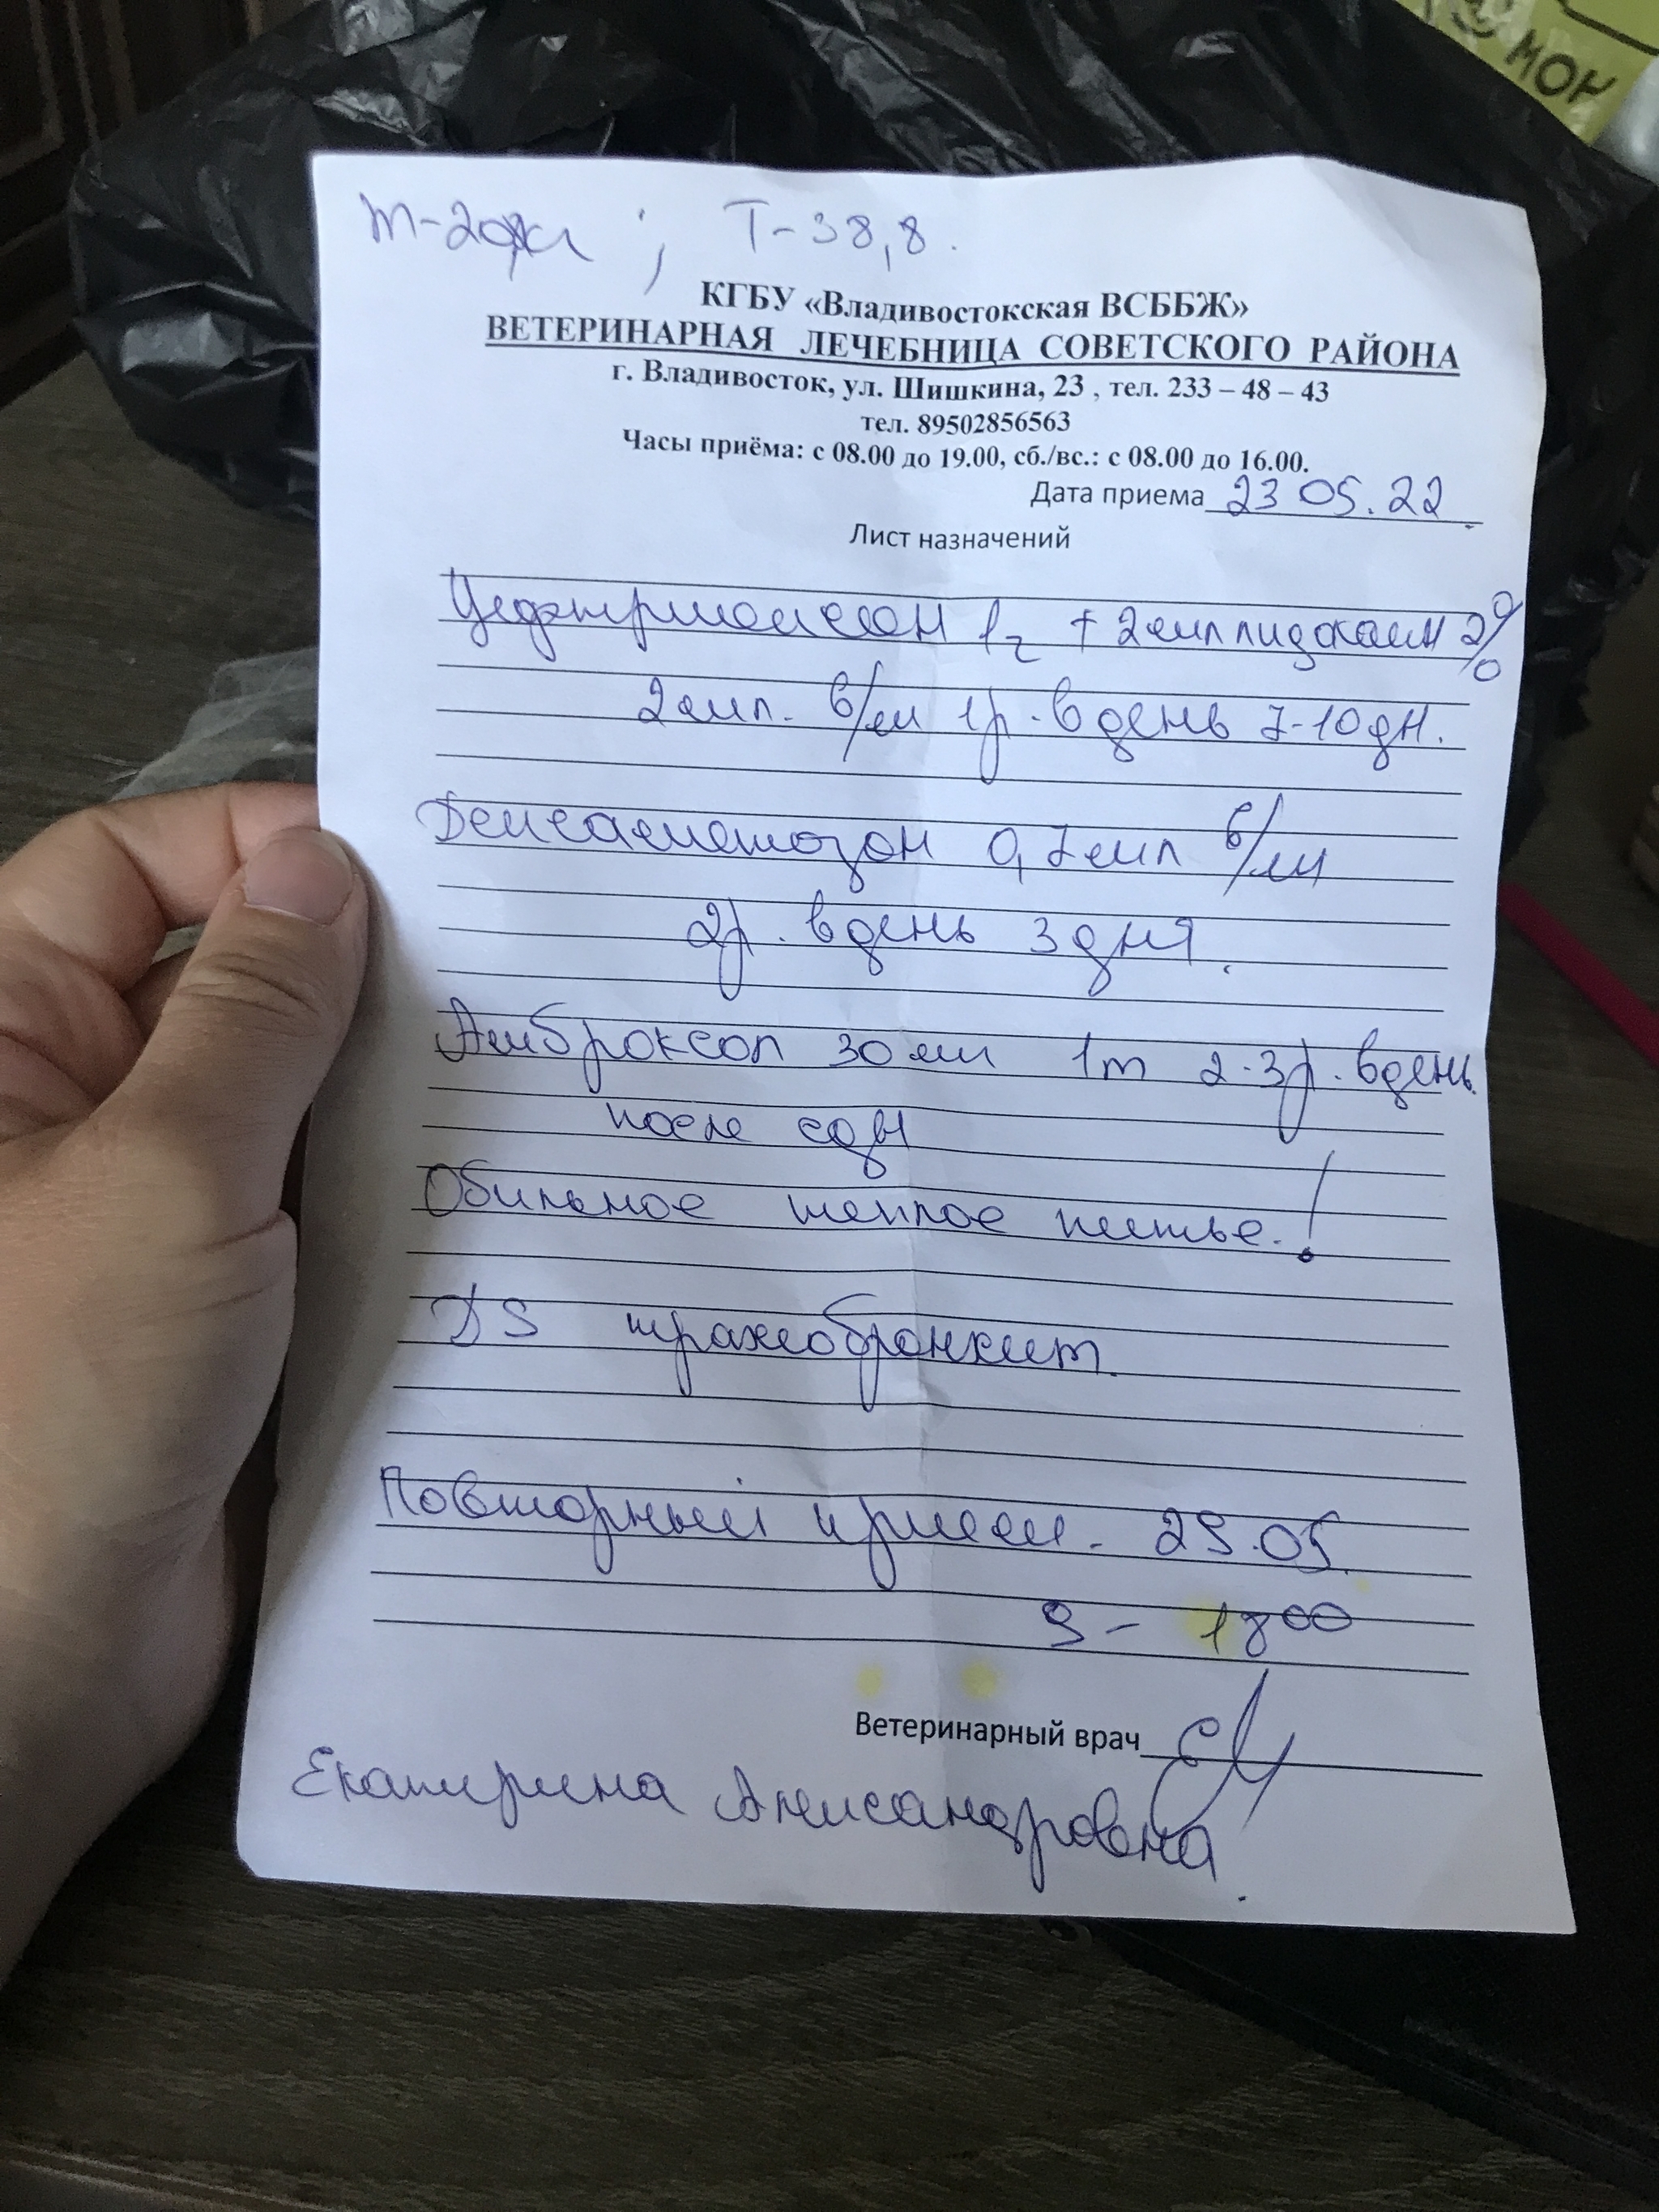 МОН
m-20кг ; T-38,8.
КГБУ «Владивостокская ВСББЖ»
ВЕТЕРИНАРНАЯ ЛЕЧЕБНИЦА СОВЕТСКОГО РАЙОНА
г. Владивосток, ул. Шишкина, 23 , тел. 233 – 48 – 43
тел. 89502856563
Часы приёма: с 08.00 до 19.00, сб./вс.: с 08.00 до 16.00.
Дата приема 23 05.22
Лист назначений
Цефтриаксон 1г + 2мл лидокаин 2%
2мл. в/м 1р. в день 7-10 дн.
Дексаметазон 0,7мл в/м
2р. в день 3 дня.
Амброксол 30 мг 1т 2-3р. в день
после еды
Обильное теплое питье.!
DS трахеобронхит.
Повторный прием. 29.05.
9 - 18 00
Ветеринарный врач
Екатерина Александровна.